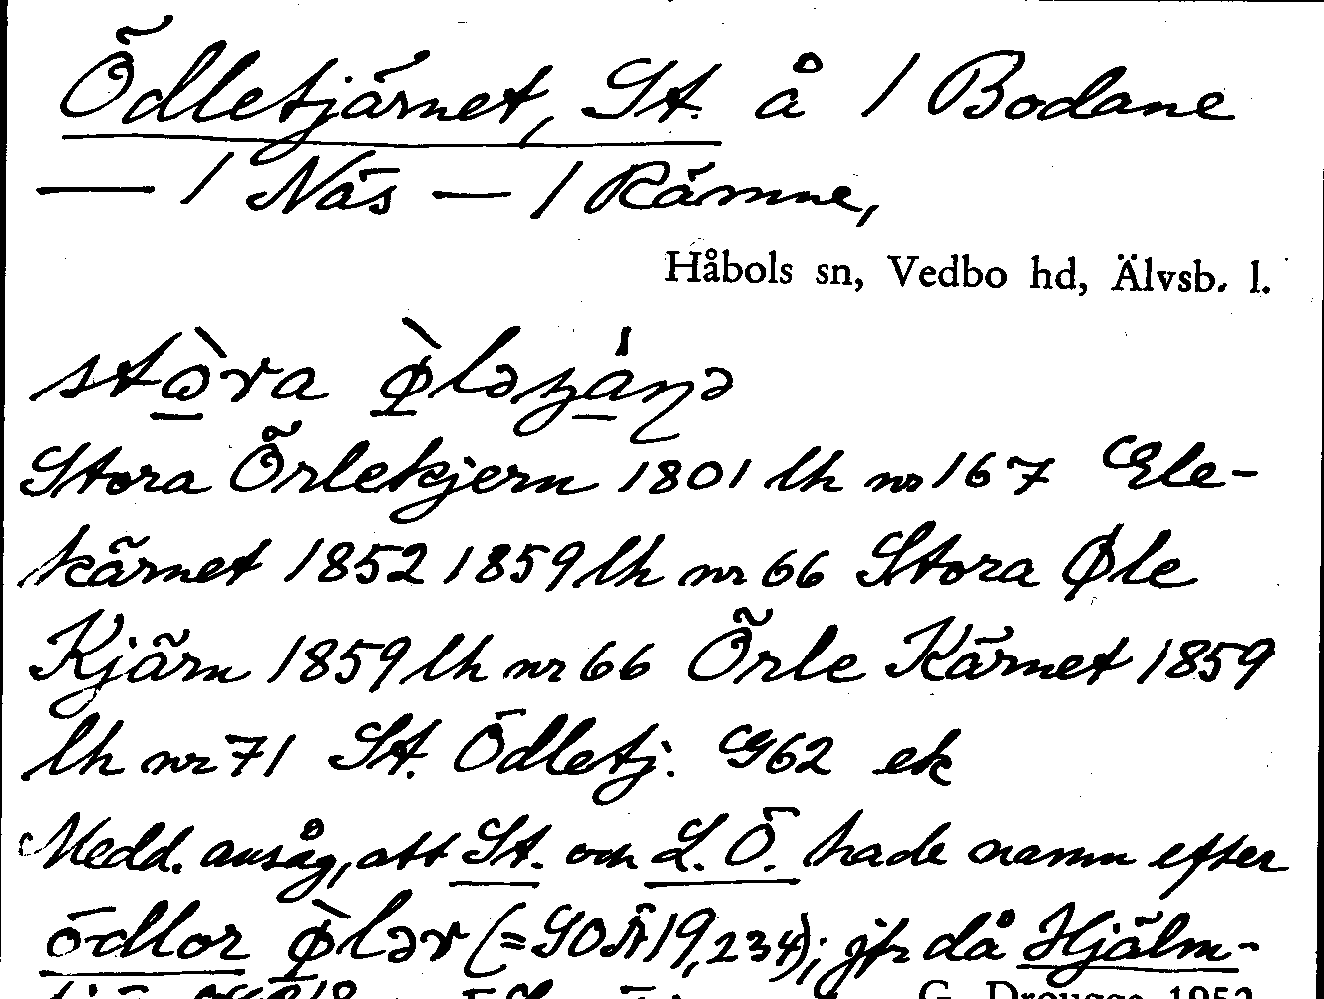 Ödletjärnet, St. å 1 Bodane
— 1 Näs — 1 Rämne,
Håbols sn, Vedbo hd, Älvsb. l.
Stora Örlekjern 1801 lh no 167 Ele-
kärnet 1852 1859 lh nr 66 Stora Øle
Kjärn 1859 lh nr 66 Örle Kärnet 1859
lh nr 71 St. Ödletj. G62 ek
Medd. ansåg, att St. och L. Ö. hade namn efter
ödlor ø̀lər (= SOÄ 19, 234); jfr då Hjälm-
G. Drougge 1952